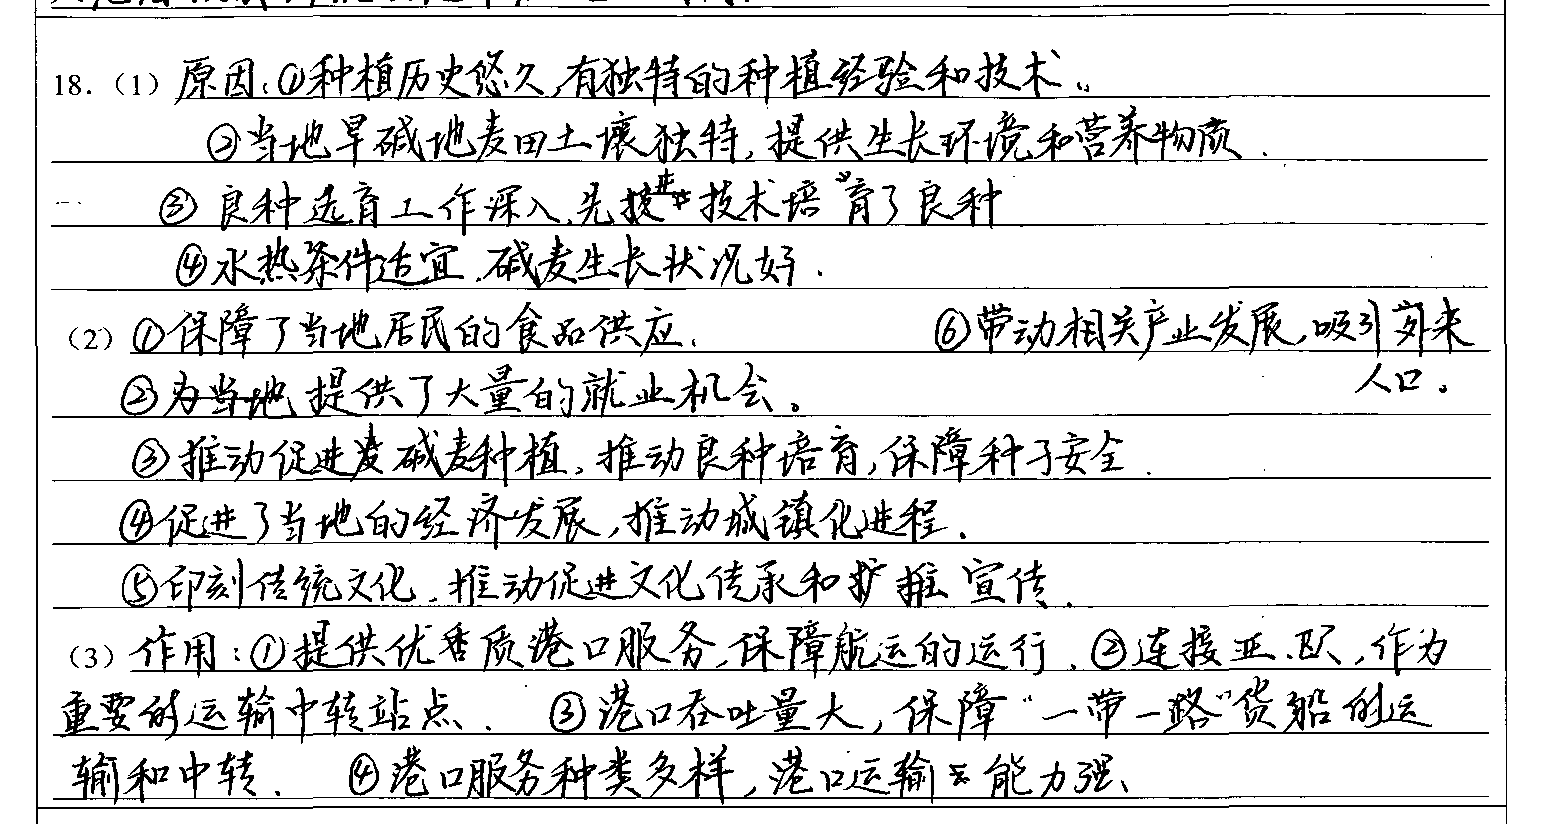 18.（1）原因：①种植历史悠久，有独特的种植经验和技术。
②当地旱碱地麦田土壤独特，提供生长环境和营养物质.
③良种选育工作深入，先进技术培育了良种
④水热条件适宜，碱麦生长状况好.
（2）①保障了当地居民的食品供应. ⑥带动相关产业发展，吸引外来
人口。
②为当地提供了大量的就业机会。
③推动促进碱麦种植，推动良种培育，保障种子安全.
④促进了当地的经济发展，推动城镇化进程.
⑤印刻传统文化，推动促进文化传承和扩推宣传.
（3）作用：①提供优质港口服务，保障航运的运行. ②连接亚、欧，作为
重要的运输中转站点. ③港口吞吐量大，保障“一带一路”货船的运
输和中转. ④港口服务种类多样，港口运输能力强、